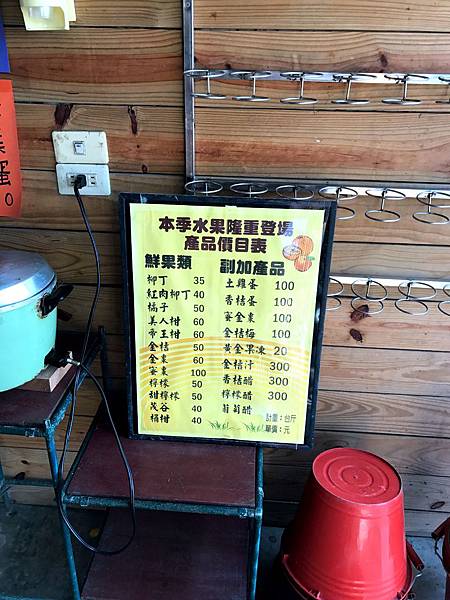 蛋。
本季水果隆重登場
產品價目表
鮮果類
柳丁 35
紅肉柳丁 40
橘子 50
美人柑 60
帝王柑 60
金桔 50
金棗 60
蜜棗 100
檸檬 50
甜檸檬 50
茂谷 40
桶柑 40
副加產品
土雞蛋 100
香桔蛋 100
蜜金棗 100
金桔梅 100
黃金果凍 20
金桔汁 300
香桔醋 300
檸檬醋 300
葡萄醋
計重:台斤
單價:元